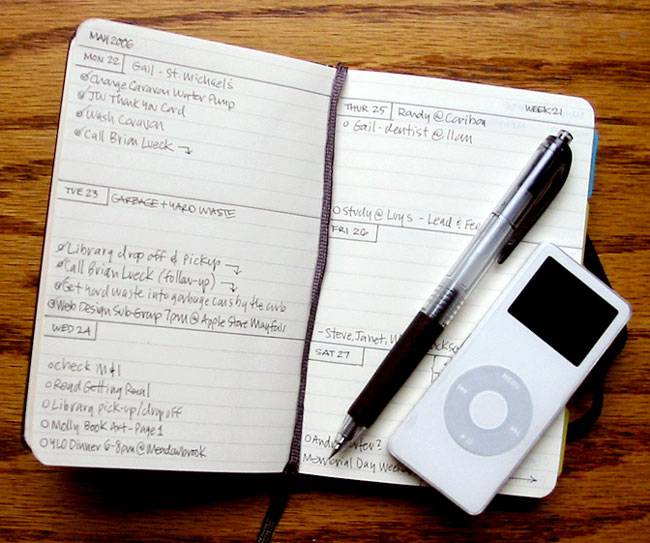 MAY 2006
MON 22 Gail - St. Michael's
Change Caravan Water Pump
JW Thank You Card
Wash Caravan
Call Brian Lueck
TUE 23 GARBAGE + YARD WASTE
Library drop off & pickup
Call Brian Lueck (follow-up)
Get yard waste into garbage cans by the curb
Web Design Sub-Group 7pm @ Apple Store Mayfair
WED 24
check M+I
Read Getting Real
Library pick-up/drop off
Molly Book Art - Page 1
YLO Dinner 6-8pm @ Meadowbrook
THUR 25 Randy @ Caribou WEEK 21
Gail - dentist @ 11am
Study @ Luy's - Lead &
FRI 26
- Steve, Janet,
SAT 27
Memorial Day
MENU